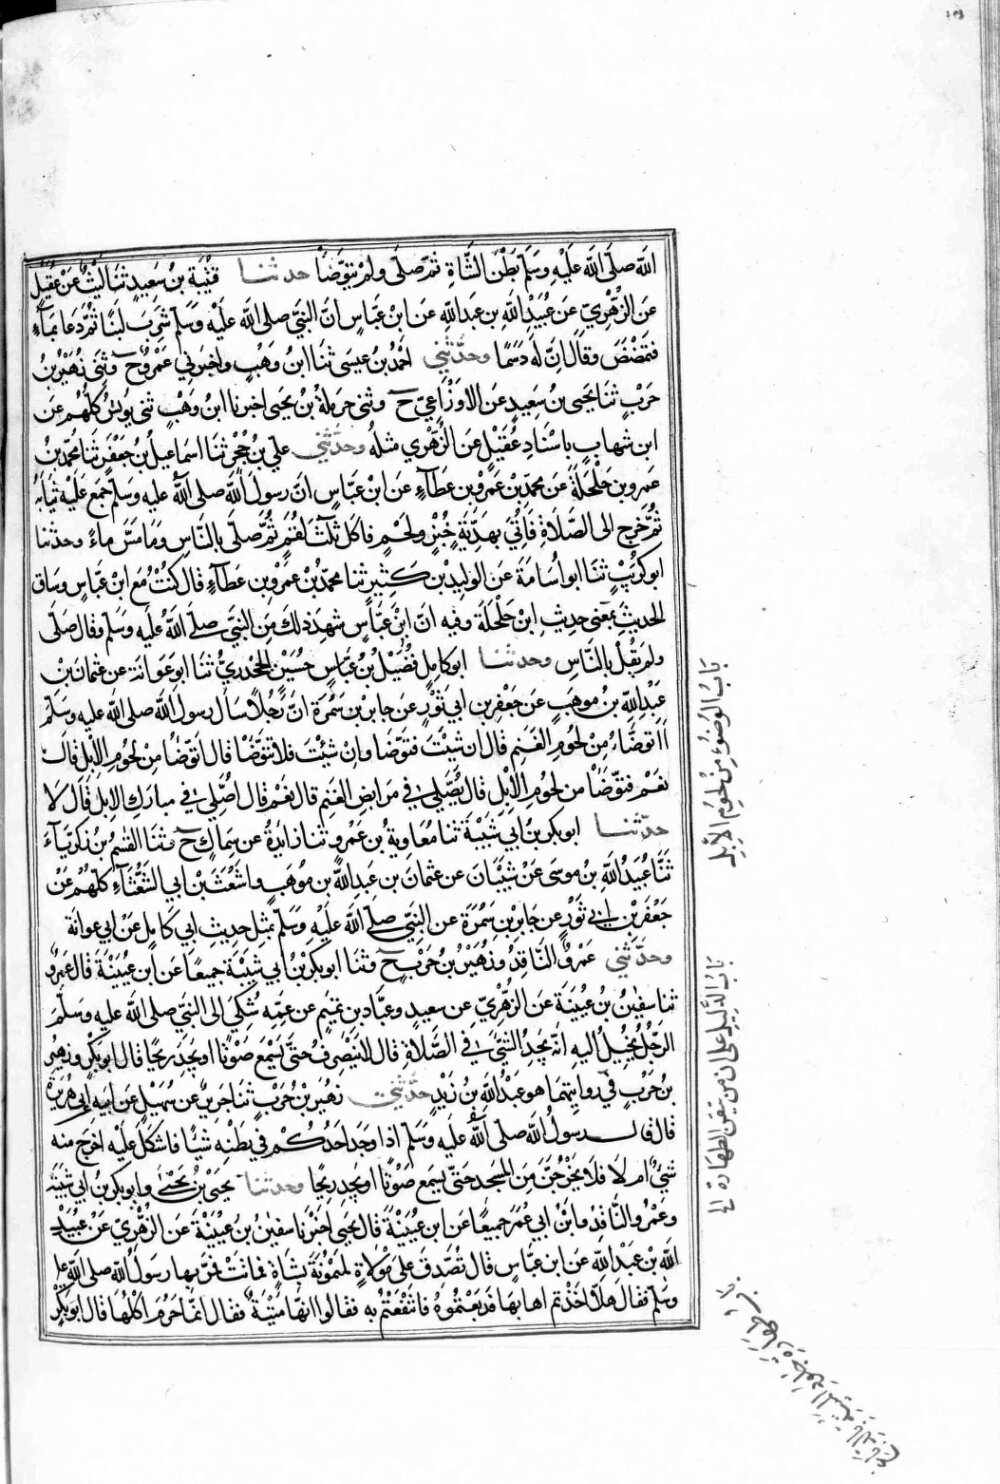 الله صلى الله عليه وسلم بطن الشاة ثم صلى ولم يتوضأ حدثنا قتيبة بن سعيد ثنا ليث عن عقيل
عن الزهري عن عبيد الله بن عبد الله عن ابن عباس ان النبي صلى الله عليه وسلم شرب لبنا ثم دعا بماء
فتمضمض وقال ان له دسما وحدثني احمد بن عيسى ثنا ابن وهب واخبرني عمرو ح وثني زهير بن
حرب ثنا يحيى بن سعيد عن الاوزاعي ح وثني حرملة بن يحيى اخبرنا ابن وهب ثني يونس كلهم عن
ابن شهاب باسناد عقيل عن الزهري مثله وحدثني علي بن حجر ثنا اسماعيل بن جعفر ثنا محمد بن
عمرو بن حلحلة عن محمد بن عمرو بن عطاء عن ابن عباس ان رسول الله صلى الله عليه وسلم جمع عليه ثيابه
ثم خرج الى الصلاة فاتي بهدية خبز ولحم فاكل ثلث لقم ثم صلى بالناس وما مس ماء وحدثنا
ابو كريب ثنا ابو اسامة عن الوليد بن كثير ثنا محمد بن عمرو بن عطاء قال كنت مع ابن عباس وساق
الحديث بمعنى حديث ابن حلحلة وفيه ان ابن عباس شهد ذلك من النبي صلى الله عليه وسلم وقال صلى
ولم يقل بالناس وحدثنا ابو كامل فضيل بن عباس حسين الجحدري ثنا ابو عوانة عن عثمان بن
عبد الله بن موهب عن جعفر بن ابي ثور عن جابر بن سمرة ان رجلا سأل رسول الله صلى الله عليه وسلم
ااتوضاء من لحوم الغنم قال ان شئت فتوضا وان شئت فلا تتوضا قال اتوضا من لحوم الابل قال
نعم فتوضا من لحوم الابل قال يصلي في مرابض الغنم قال نعم قال اصلي في مبارك الابل قال لا
حدثنا ابو بكر بن ابي شيبة ثنا معاوية بن عمرو ثنا زايدة عن سماك ح وثنا القسم بن زكرياء
ثنا عبيد الله بن موسى عن شيبان عن عثمان بن عبد الله بن موهب واشعث بن ابي الشعثاء كلهم عن
جعفر بن ابي ثور عن جابر بن سمرة عن النبي صلى الله عليه وسلم بمثل حديث ابي كامل عن ابي عوانة
وحدثني عمرو الناقد وزهير بن حرب ح وثنا ابو بكر بن ابي شيبة جميعا عن ابن عيينة قال عمرو
ثنا سفين بن عيينة عن الزهري عن سعيد وعباد بن تميم عن عمه شكي الى النبي صلى الله عليه وسلم
الرجل يخيل اليه انه يجد الشئ في الصلاة قال لا ينصرف حتى يسمع صوتا او يجد ريحا قال ابو بكر وزهير
بن حرب في روايتهما هو عبد الله بن زيد حدثني زهير بن حرب ثنا جرير عن سهيل عن ابيه ابي هريرة
قال قال رسول الله صلى الله عليه وسلم اذا وجد احدكم في بطنه شيئا فاشكل عليه اخرج منه
شئ ام لا فلا يخرجن من المسجد حتى يسمع صوتا او يجد ريحا وحدثنا يحيى بن يحيى وابو بكر بن ابي شيبة
وعمرو الناقد وابن ابي عمر جميعا عن ابن عيينة قال يحيى اخبرنا سفين بن عيينة عن الزهري عن عبيد
الله بن عبد الله عن ابن عباس قال تصدق على مولاة لميمونة بشاة فماتت فمر بها رسول الله صلى الله عليه
وسلم فقال هلا اخذتم اهابها فدبغتموه فانتفعتم به فقالوا انها ميتة فقال انما حرم اكلها قال ابو بكر
باب الوضوء من لحوم الابل
باب الدليل على ان من تيقن الطهارة الى